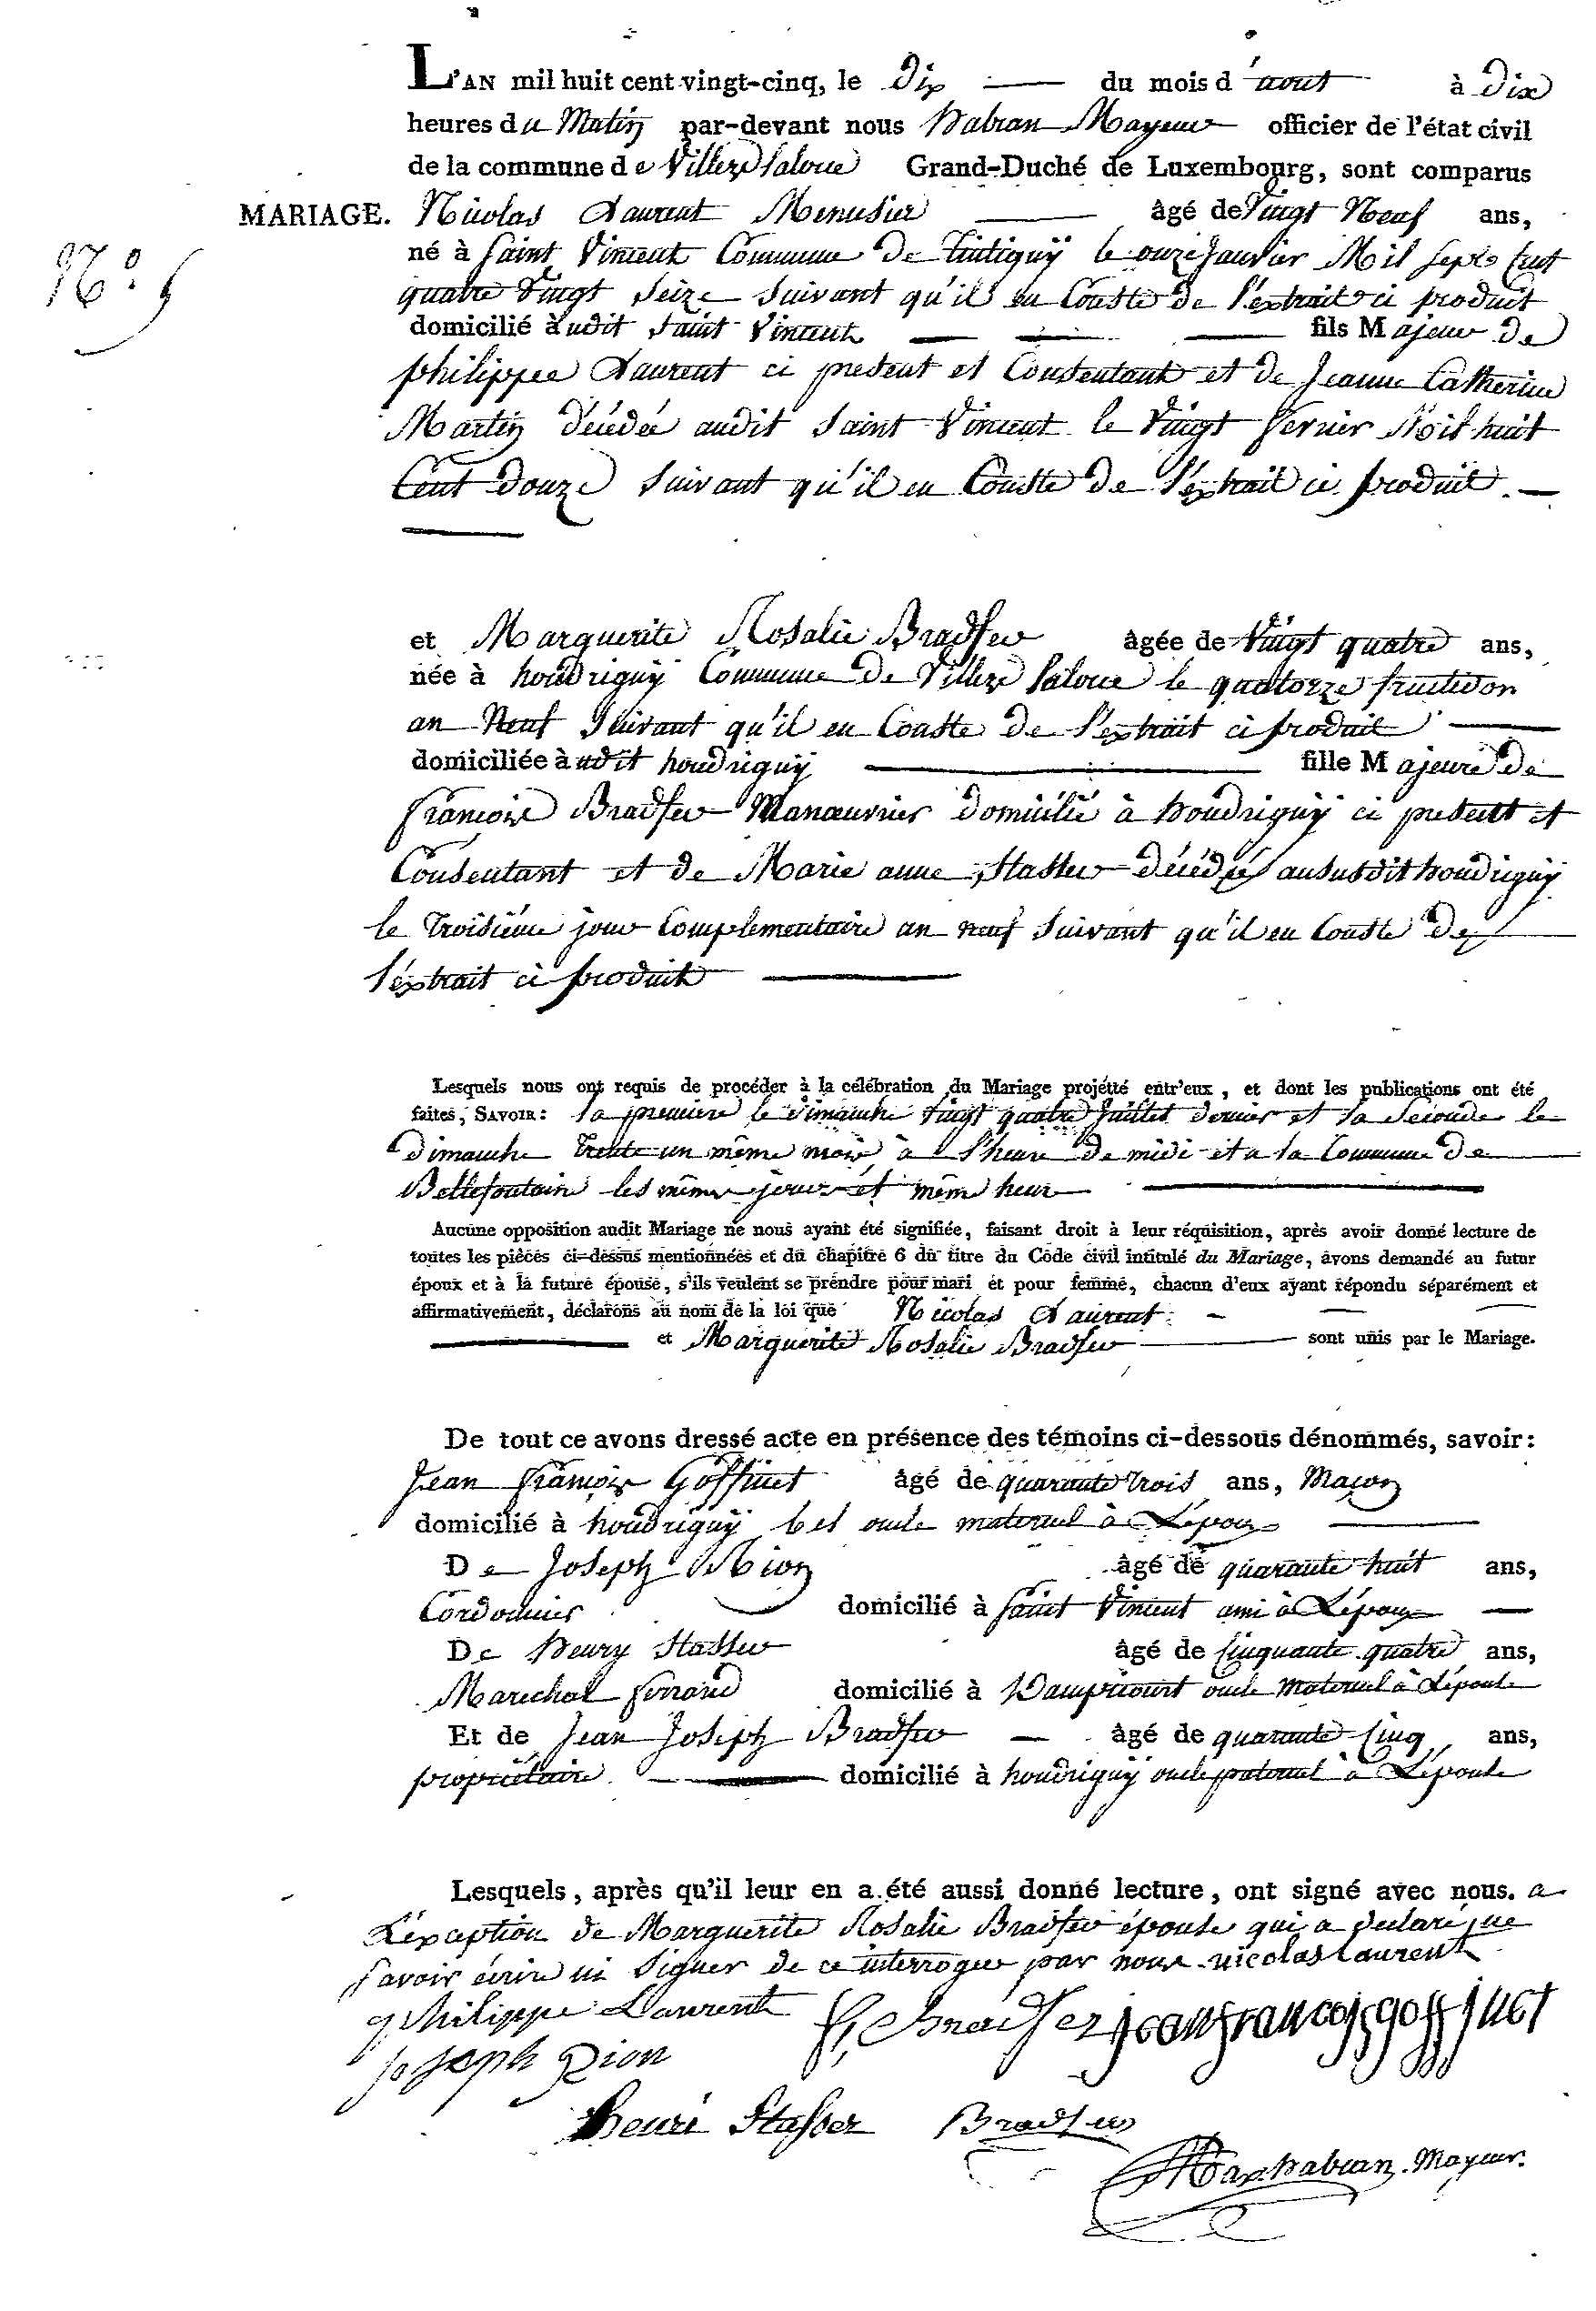 L'AN mil huit cent vingt-cinq, le Dix du mois d'aout à Dix
heures du Matin par-devant nous habran Mayeur officier de l'état civil
de la commune de Villers Laloue Grand-Duché de Luxembourg, sont comparus
MARIAGE. Nicolas Laurent Menusier âgé de Vingt Neuf ans,
N.° 5
né à Saint Vincent Commune de Tintignÿ le onze Janvier Mil sept Cent
quatre Vingt Seize Suivant qu'il en Conste de l'extrait ci produit
domicilié audit Saint Vincent fils Majeur de
philippe Laurent ci present et Consentant et de Jeanne Catherine
Martin décédée audit Saint Vincent le Vingt fevrier Mil huit
Cent Douze Suivant qu'il en Conste de l'extrait ci produit.
et Marguerite Rosalie Bradfer âgée de Vingt quatre ans,
née à houdrignÿ Commune de Villers Laloue le quatorze fructidor
an Neuf Suivant qu'il en Conste de l'extrait ci produit
domiciliée audit houdrignÿ fille Majeure de
françois Bradfer Manœuvrier domicilié à houdrignÿ ci present et
Consentant et de Marie anne Stasser décédée au susdit houdrignÿ
le troisiéme jour Complementaire an neuf Suivant qu'il en Conste de
l'extrait ci produit
Lesquels nous ont requis de procéder à la célébration du Mariage projetté entr'eux, et dont les publications ont été
faites, SAVOIR: la premiere le dimanche Vingt quatre Juillet dernier et la Seconde le
dimanche trente un même mois, à l'heure de midi et a la Commune de
Bellefontaine les même jours et même heure
Aucune opposition audit Mariage ne nous ayant été signifiée, faisant droit à leur réquisition, après avoir donné lecture de
toutes les pièces ci-dessus mentionnées et du chapitre 6 du titre du Code civil intitulé du Mariage, avons demandé au futur
époux et à la future épouse, s'ils veulent se prendre pour mari et pour femme, chacun d'eux ayant répondu séparément et
affirmativement, déclarons au nom de la loi que Nicolas Laurent
et Marguerite Rosalie Bradfer sont unis par le Mariage.
De tout ce avons dressé acte en présence des témoins ci-dessous dénommés, savoir:
Jean françois Goffinet âgé de quarante trois ans, Maçon
domicilié à houdrignÿ bel oncle maternel à L'époux
De Joseph Rion âgé de quarante huit ans,
Cordonnier domicilié à Saint Vincent ami à L'époux
De henry Stasser âgé de Cinquante quatre ans,
Marechal ferrand domicilié à Dampicourt oncle maternel à L'épouse
Et de Jean Joseph Bradfer âgé de quarante Cinq ans,
propriétaire domicilié à houdrignÿ oncle paternel à L'épouse
Lesquels, après qu'il leur en a été aussi donné lecture, ont signé avec nous. a
L'exception de Marguerite Rosalie Bradfer épouse qui a declaré ne
savoir écrire ni Signer de ce interrogée par nous. nicolas laurent
philippe Laurent f, Bradfer jean francois goffinet
joseph Rion
henri Stasser Bradfer
habran. Mayeur.